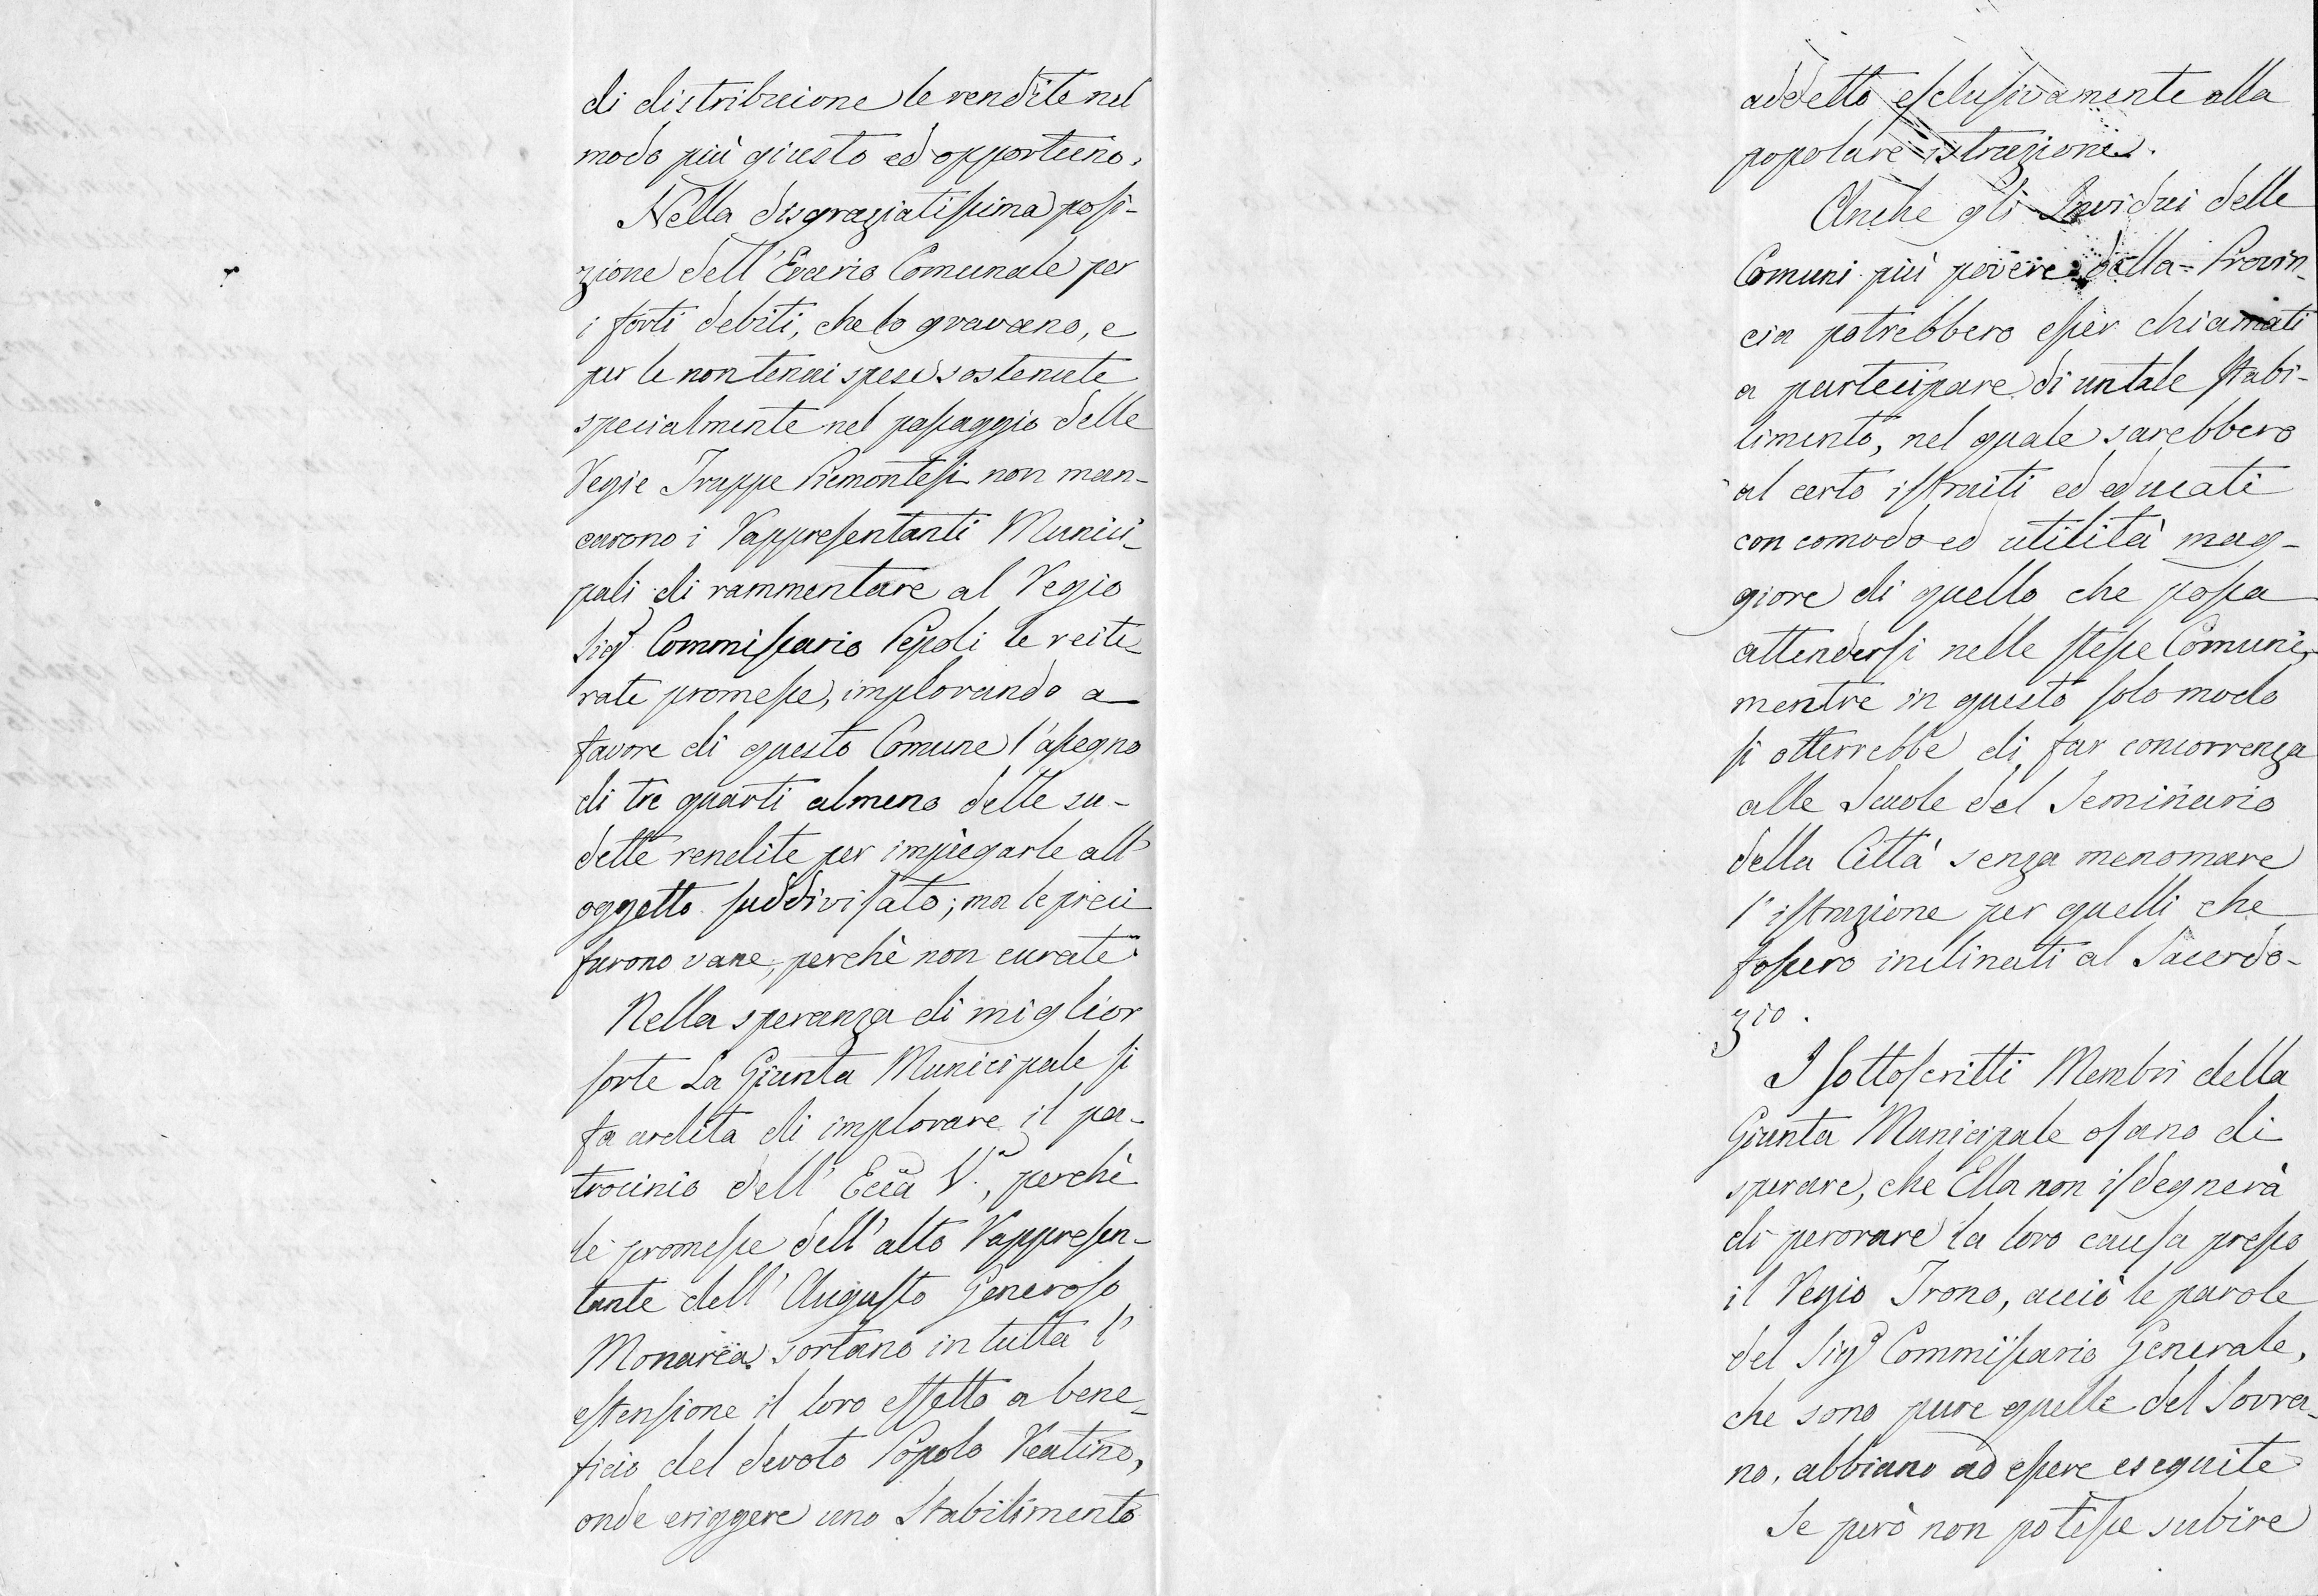 di distribuione le rendite nel
modo più giusto ed opportuno.
Nella disgraziatissima posi-
zione dell'Erario Comunale per
i forti debiti, che lo gravano, e
per le non tenui spese sostenute
specialmente nel passaggio delle
Regie Truppe Piemontesi non man-
carono i Rappresentanti Munici-
pali di rammentare al Regio
Sigr Commissario Pepoli le reite-
rate promesse, implorando a
favore di questo Comune l'assegno
di tre quarti almeno delle su-
dette rendite per impiegarle all'
oggetto suddivisato; ma le preci
furono vane, perchè non curate.
Nella speranza di miglior
sorte La Giunta Municipale si
fa ardita di implorare il pa-
trocinio dell' Ecc̃a V., perchè
le promesse dell'alto Rappresen-
tante dell' Augusto Generoso
Monarca sortano in tutta l'
estensione il loro effetto a bene-
ficio del devoto Popolo Reatino,
onde eriggere uno Stabilimento
addetto esclusivamente alla
popolare istruzione.
Anche gli Invidui delle
Comuni più povere della Provin-
cia potrebbero esser chiamati
a partecipare di un tale stabi-
limento, nel quale sarebbero
al certo istruiti ed educati
con comodo ed utilità mag-
giore di quello che possa
attendersi nelle stesse Comuni,
mentre in questo solo modo
si otterrebbe di far concorrenza
alle Scuole del Seminario
della Città senza menomare
l'istruzione per quelli che
fossero inclinati al Sacerdo-
zio.
I sottoscritti Membri della
Giunta Municipale osano di
sperare, che Ella non isdegnerà
di perorare la loro causa presso
il Regio Trono, acciò le parole
del Sigr Commissario Generale,
che sono pure quelle del Sovra-
no, abbiano ad essere eseguite
Se però non potesse subire